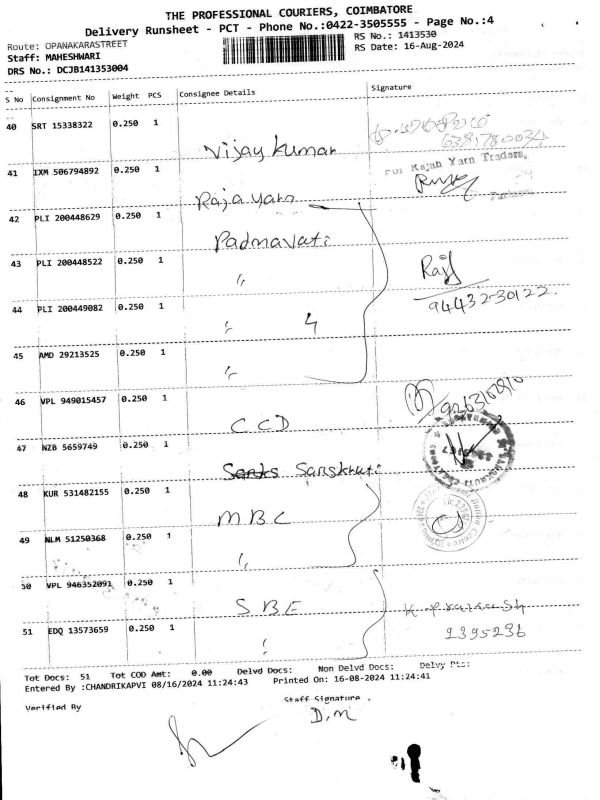 THE PROFESSIONAL COURIERS, COIMBATORE
Delivery Runsheet - PCT - Phone No.:0422-3505555 - Page No.:4
Route: OPANAKARASTREET
RS No.: 1413530
Staff: MAHESHWARI
RS Date: 16-Aug-2024
DRS No.: DCJB141353004
S No Consignment No Weight PCS Consignee Details Signature
40 SRT 15338322 0.250 1
Vijay kumar
41 IXM 506794892 0.250 1
For Rajah Yarn Traders,
Raja yarn
Partner
42 PLI 200448629 0.250 1
Padmavati
43 PLI 200448522 0.250 1
"
Raj
94432-30122
44 PLI 200449082 0.250 1
" 4
45 AMD 29213525 0.250 1
"
46 VPL 949015457 0.250 1
CCD
47 NZB 5659749 0.250 1
Sanskruti
48 KUR 531482155 0.250 1
MBC
49 NLM 51250368 0.250 1
"
50 VPL 946352091 0.250 1
SBE
K. Prakash
51 EDQ 13573659 0.250 1
2395236
"
Tot Docs: 51 Tot COD Amt: 0.00 Delvd Docs: Non Delvd Docs: Delvy Pts:
Entered By :CHANDRIKAPVI 08/16/2024 11:24:43 Printed On: 16-08-2024 11:24:41
Verified By
Staff Signature
D.M